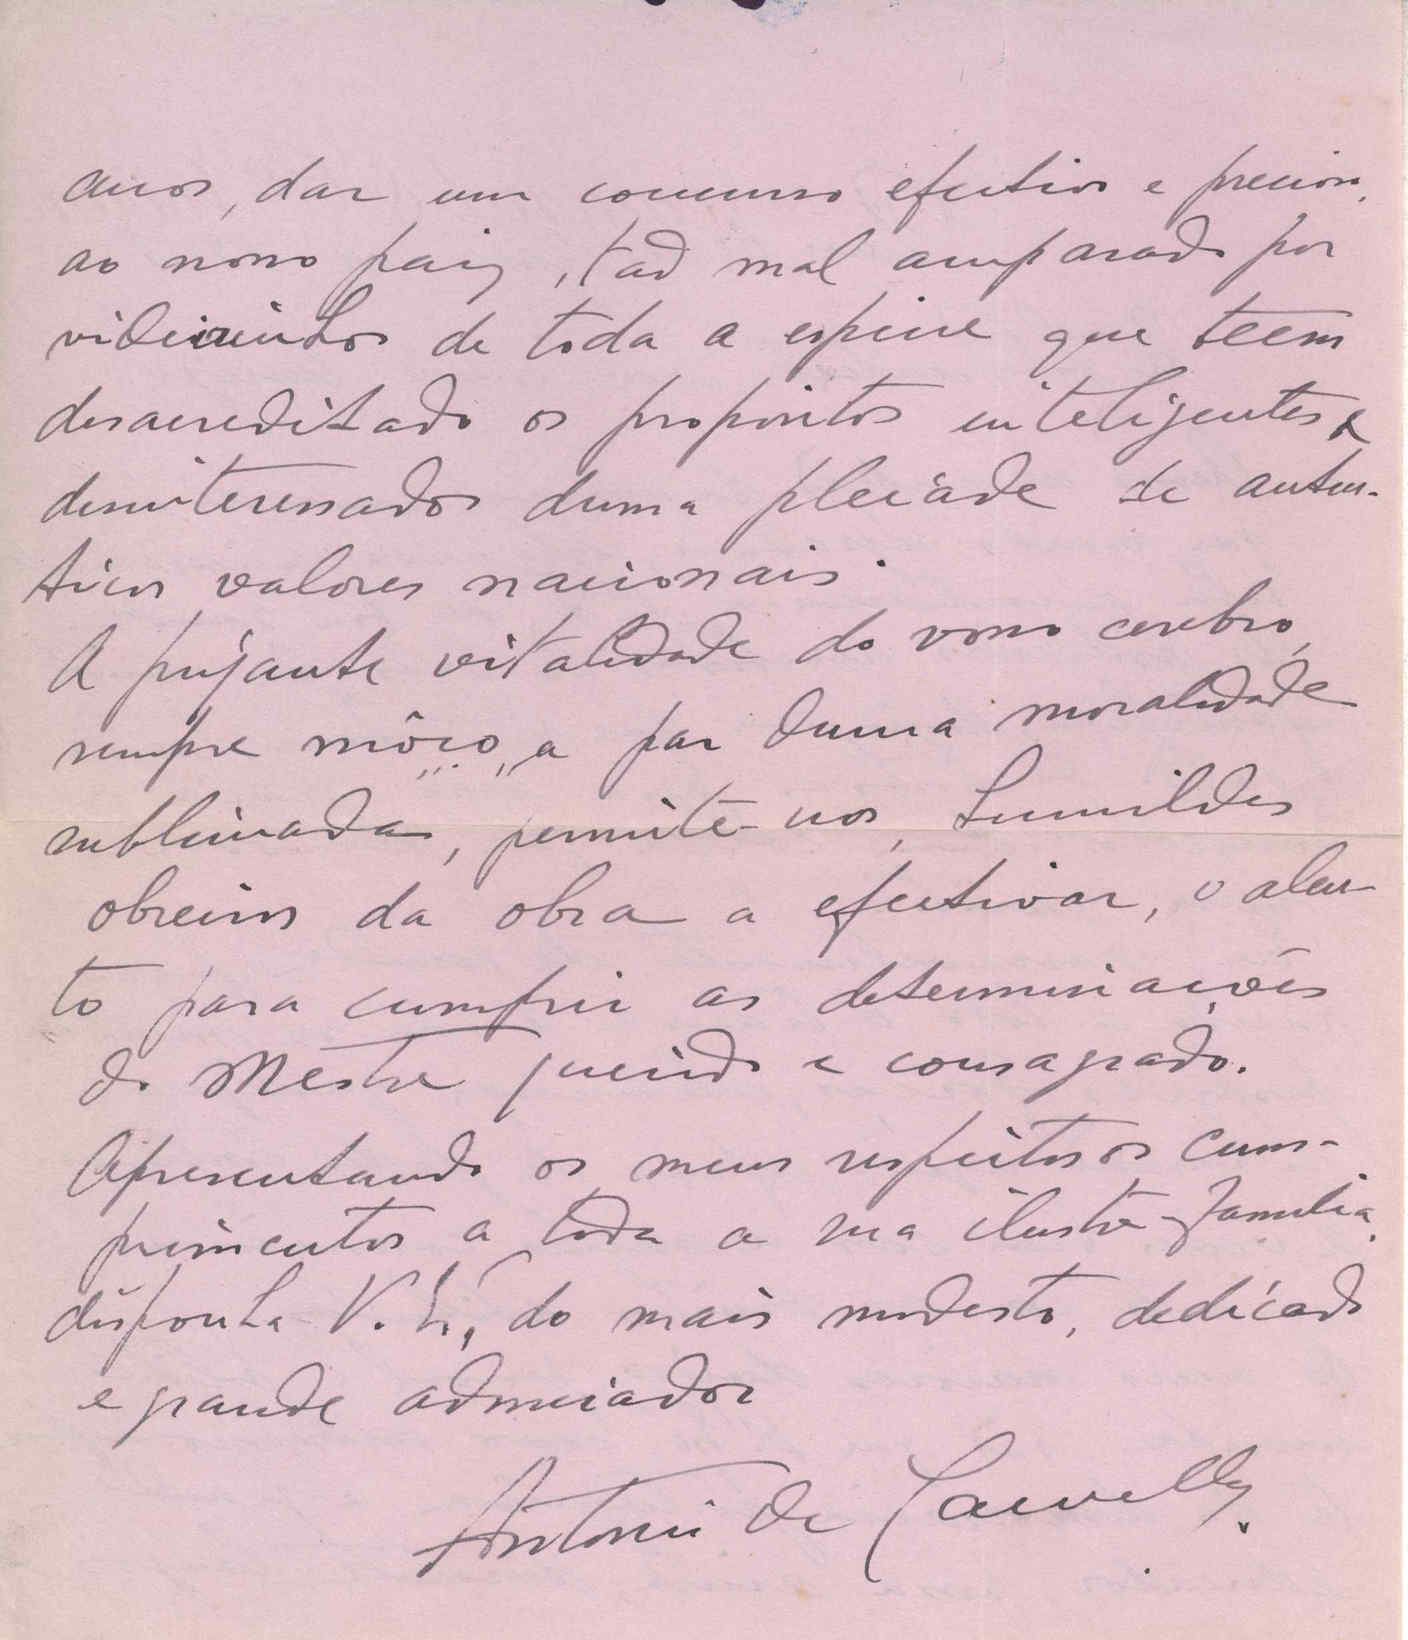 anos, dar um concurso efectivo e precioso,
ao nosso paiz, tão mal amparado por
videirinhos de toda a especie que teem
desacreditado os propositos inteligentes e
desinteressados duma pleiade de auten-
ticos valores nacionais.
A pujante vitalidade do vosso cerebro,
sempre môço, a par duma moralidade
sublimada, permite-nos, humildes
obreiros da obra a efectivar, o alen-
to para cumprir as determinações
do Mestre querido e consagrado.
Apresentando os meus respeitosos cum-
primentos a toda a sua ilustre familia,
disponha V. Ex., do mais modesto, dedicado
e grande admirador
Antonio de